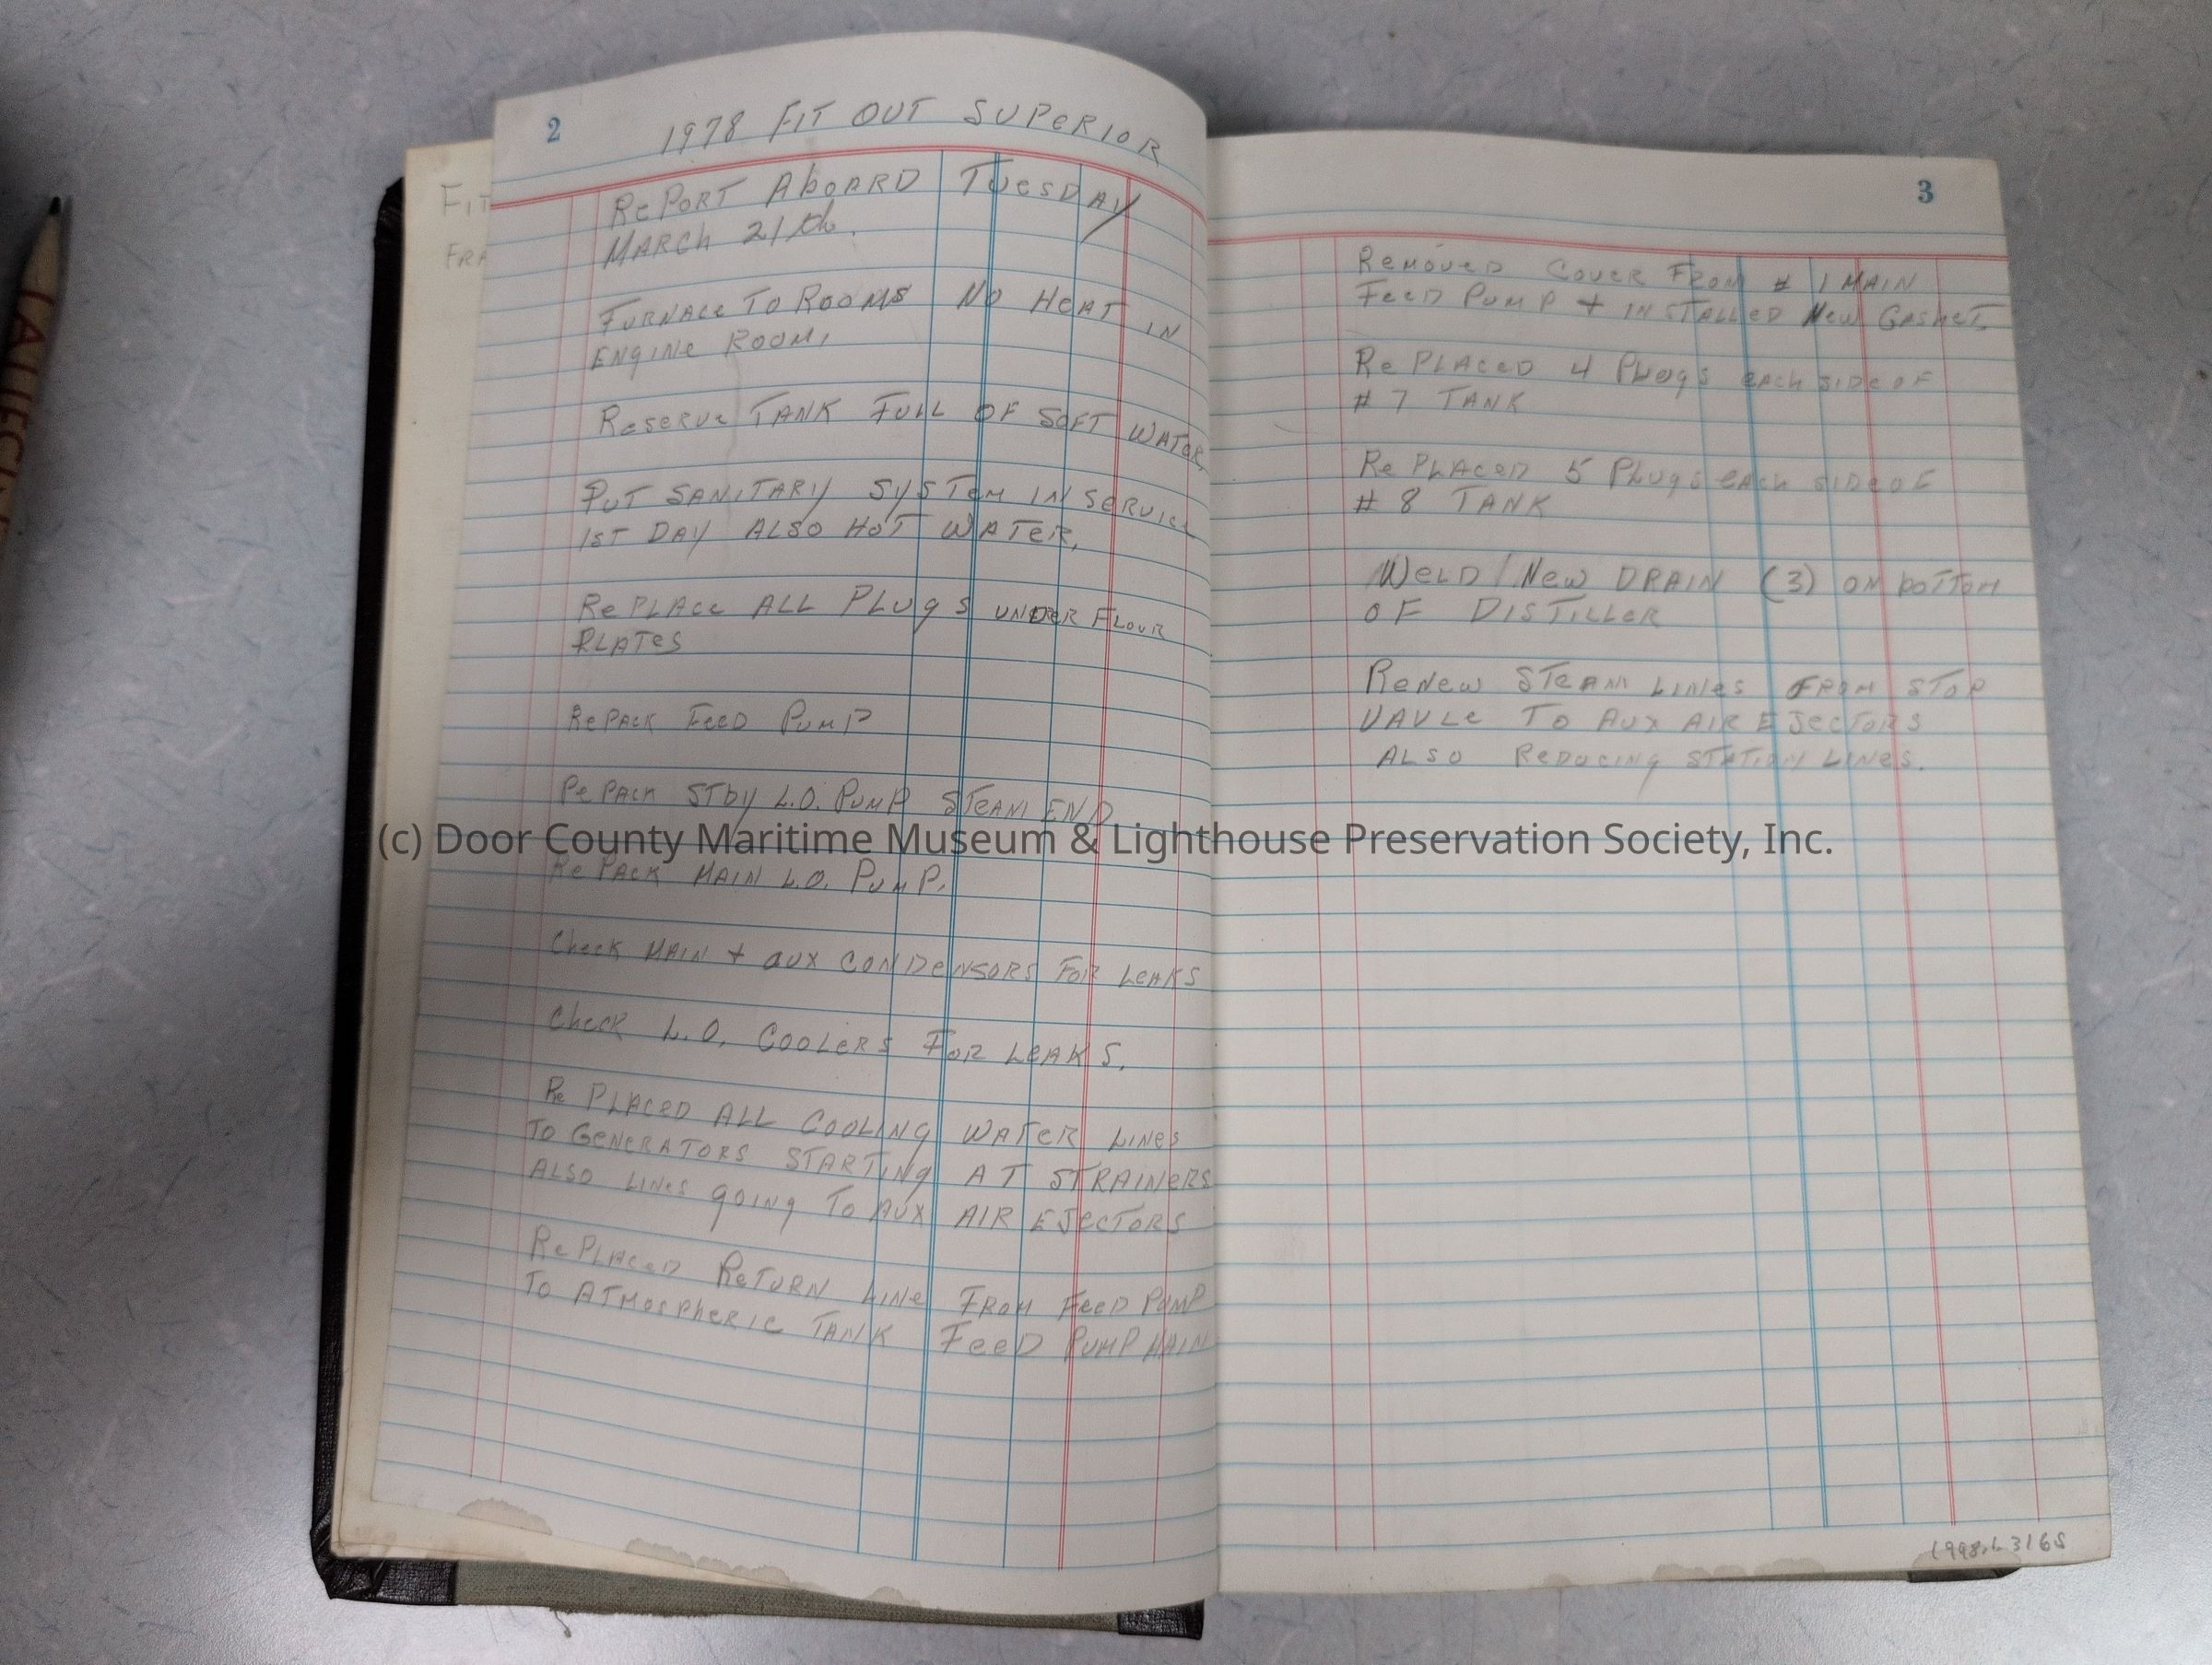 2
1978 FIT OUT SUPERIOR
REPORT ABOARD TUESDAY
MARCH 21th.
FURNACE TO ROOMS NO HEAT IN
ENGINE ROOM,
RESERVE TANK FULL OF SOFT WATOR,
PUT SANITARY SYSTEM IN SERVICE
1ST DAY ALSO HOT WATER,
REPLACE ALL PLUGS UNDER FLOUR
PLATES
REPACK FEED PUMP
REPACK STBY L.O. PUMP STEAM END
REPACK MAIN L.O. PUMP.
CHECK MAIN + AUX CONDENSORS FOR LEAKS
CHECK L.O. COOLERS FOR LEAKS.
REPLACED ALL COOLING WATER LINES
TO GENERATORS STARTING AT STRAINERS
ALSO LINES GOING TO AUX AIR EJECTORS
REPLACED RETURN LINE FROM FEED PUMP
TO ATMOSPHERIC TANK FEED PUMP MAIN
FIT
FRA
3
REMOVED COVER FROM # 1 MAIN
FEED PUMP + INSTALLED NEW GASKET.
REPLACED 4 PLUGS EACH SIDE OF
# 7 TANK
REPLACED 5 PLUGS EACH SIDE OF
# 8 TANK
WELD NEW DRAIN (3) ON BOTTOM
OF DISTILLER
RENEW STEAM LINES FROM STOP
VAVLE TO AUX AIR EJECTORS
ALSO REDUCING STATION LINES.
(c) Door County Maritime Museum & Lighthouse Preservation Society, Inc.